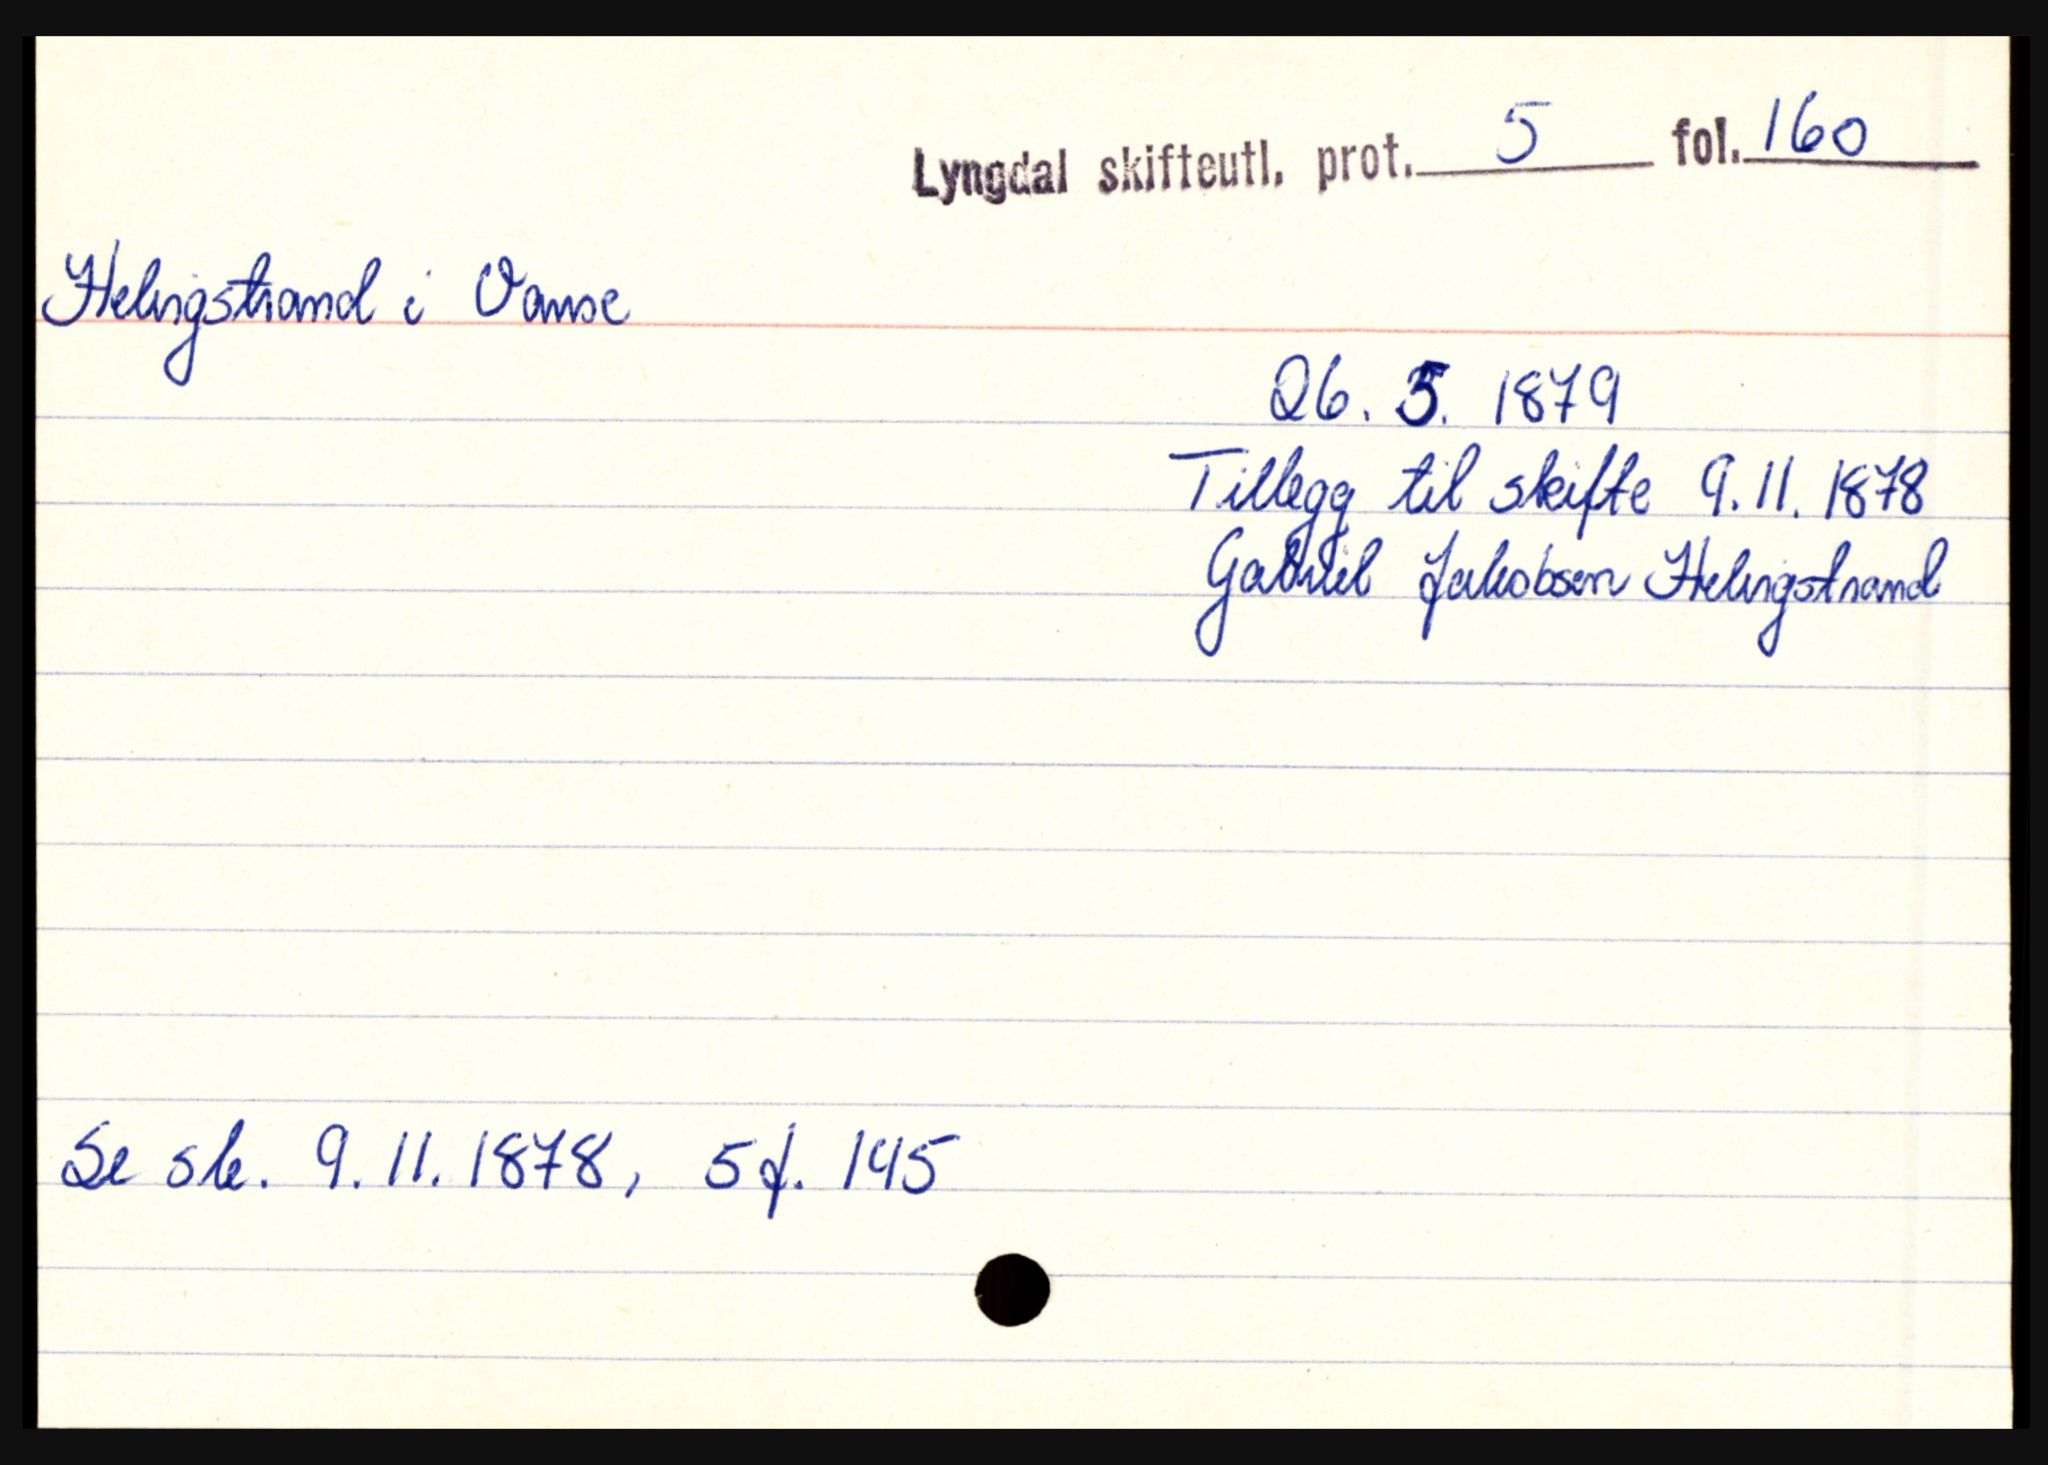 Lyngdal skifteutl. prot. 5 fol. 160
Helvigstrand i Vanse
26. 5. 1879
Tillegg til skifte 9.11. 1878
Gabriel Jakobsen Helvigstrand
Se sk. 9. 11. 1878, 5 f. 145